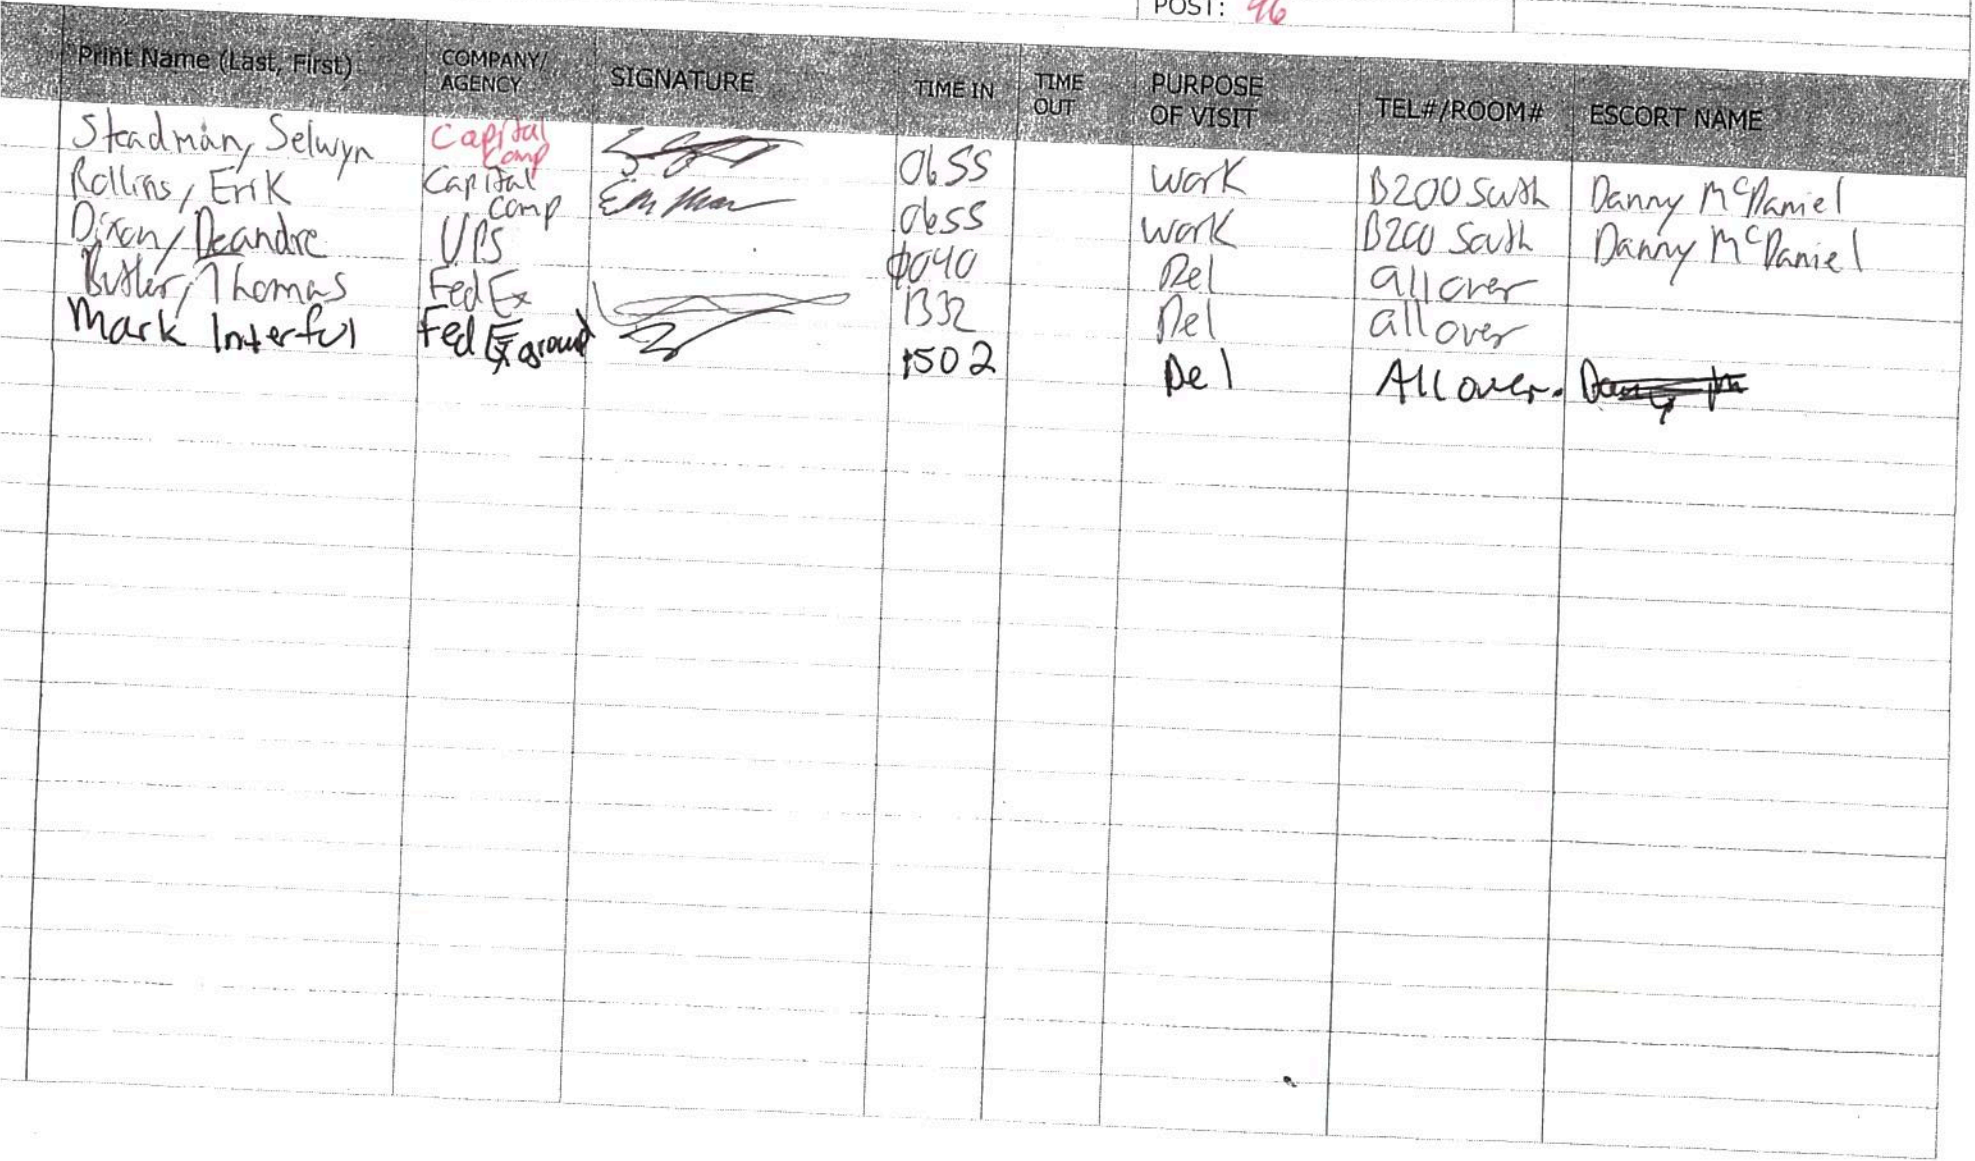 POST: 96
Print Name (Last, First) COMPANY/AGENCY SIGNATURE TIME IN TIME OUT PURPOSE OF VISIT TEL#/ROOM# ESCORT NAME
Steadman, Selwyn Capital Comp 0655 work B200 South Danny McDaniel
Rollins, Erik Capital Comp 0655 work B200 South Danny McDaniel
Dixon, Deandre UPS Del all over
Butler, Thomas FedEx 1332 Del all over
Mark Interful Fed Ex ground 1502 Del All over.